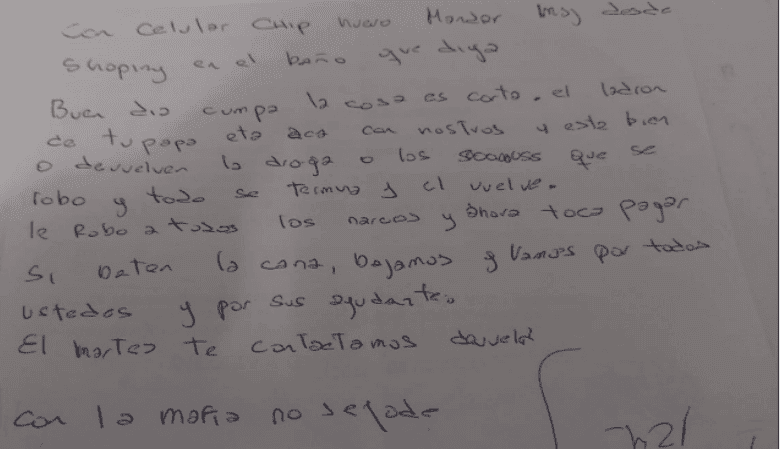 Con celular chip nuevo Mandar msj desde
Shoping en el baño que diga
Buen dia cumpa la cosa es corta. el ladron
de tu papa eta aca con nostros y esta bien
o devuelven la droga o los que se
robo y todo se termina y el vuelve.
le Robo a todos los narcos y ahora toca pagar
Si baten la cana, bajamos y Vamos por todos
ustedes y por sus ayudante.
El martes te contactamos
con la mafia no se jode